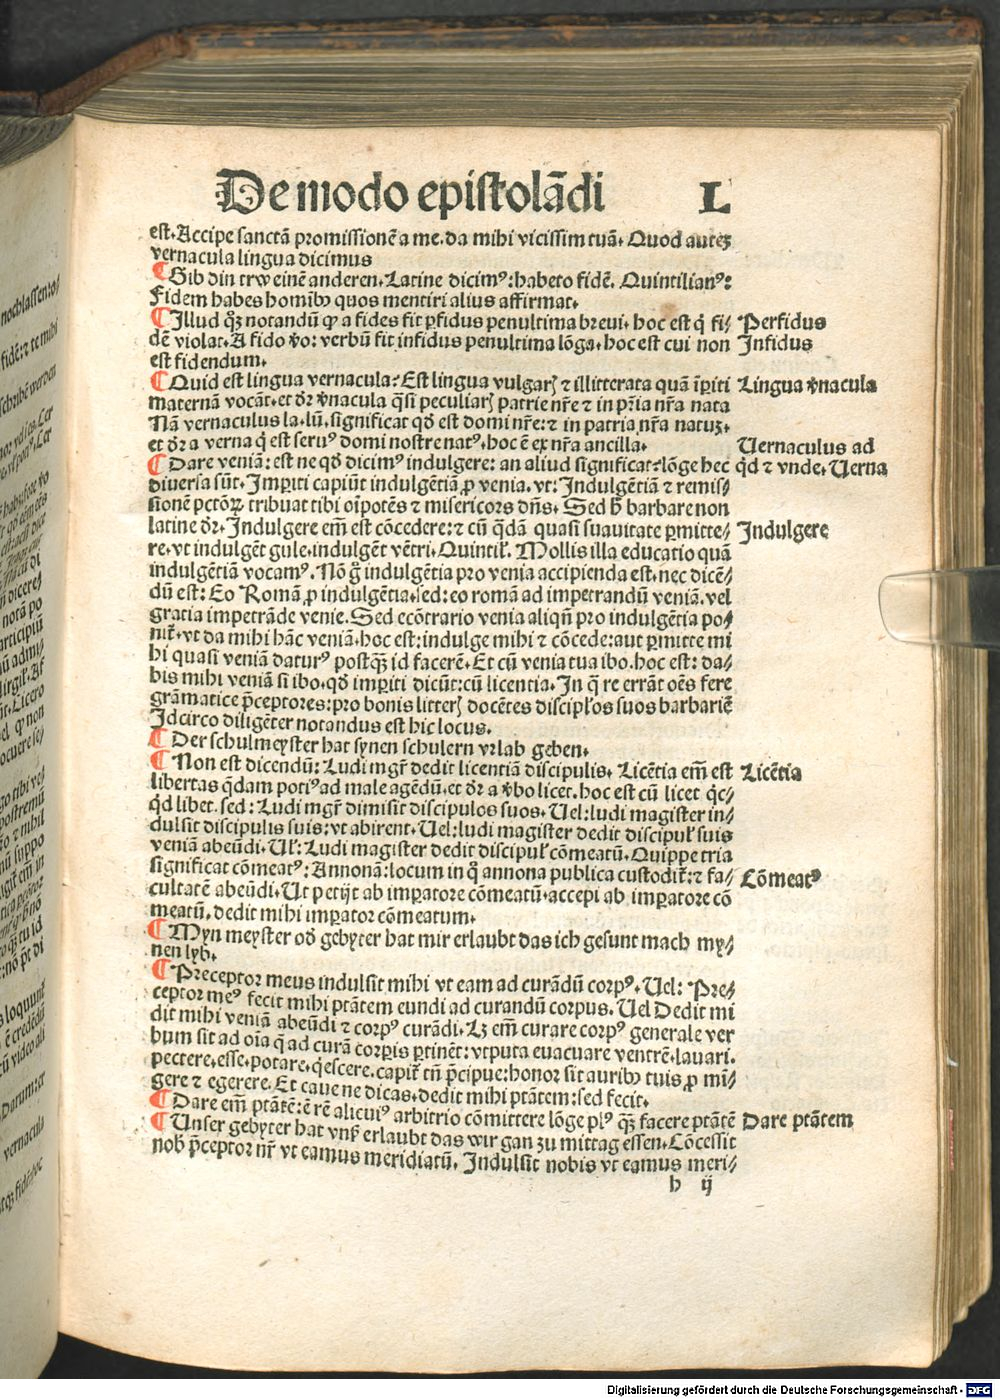 De modo epistolādi L
est. Accipe sanctā promissionē a me. da mihi vicissim tuā. Quod autēꝫ
vernacula lingua dicimus
¶ Gib din trw einē anderen. Latine dicimꝰ: habeto fidē. Quintilianꝰ:
Fidem habes homibꝰ quos mentiri alius affirmat.
¶ Illud qꝫ notandū ꝙ a fides fit ꝑfidus penultima brevi. hoc est q̄ fi⸗ Perfidus
dē violat. A fido ꝟo: verbū fit infidus penultima lōga. hoc est cui non Infidus
est fidendum.
¶ Quid est lingua vernacula? Est lingua vulgarꝭ ⁊ illitterata quā īꝑiti Lingua ꝟnacula
maternā vocāt. et d̄r ꝟnacula q̄si peculiarꝭ patrie nr̄e ⁊ in pr̄ia nr̄a nata
Nā vernaculus la. lū. significat qd̄ est domi nr̄e: ⁊ in patria nr̄a natuꝫ.
et d̄r a verna q̄ est seruꝰ domi nostre natꝰ. hoc ē ex nr̄a ancilla. Uernaculus ad
¶ Dare veniā: est ne qd̄ dicimꝰ indulgere: an aliud significat? lōge hec q̄d ⁊ vnde. Uerna
diversa sūt. Imꝑiti capiūt indulgētiā ꝓ venia. vt: Indulgētiā ⁊ remis⸗
sionē pctōꝝ tribuat tibi oīpotēs ⁊ misericors dn̄s. Sed h̄ barbare non
latine d̄r. Indulgere em̄ est cōcedere: ⁊ cū q̄dā quasi suauitate ꝑmitte⸗ Indulgere
re. vt indulgēt gule. indulgēt vētri. Quintil'. Mollis illa educatio quā
indulgētiā vocamꝰ. Nō g̊ indulgētia pro venia accipienda est. nec dicē⸗
dū est: Eo Romā ꝓ indulgētia. sed: eo romā ad impetrandū veniā. vel
gratia impetrāde venie. Sed ecōtrario venia aliqn̄ pro indulgētia po⸗
nit̄. vt da mihi hāc veniā. hoc est: indulge mihi ⁊ cōcede: aut ꝑmitte mi
hi quasi veniā daturꝰ postqꝫ id facerē. Et cū venia tua ibo. hoc est: da⸗
bis mihi veniā si ibo. qd̄ imꝑiti dicūt: cū licentia. In q̄ re errāt oēs fere
grāmatice p̄ceptores: pro bonis litterꝭ docētes discipl'os suos barbariē
Idcirco diligēter notandus est hic locus.
¶ Der schulmeyster hat synen schulern vrlab geben.
¶ Non est dicendū: Ludi mgr̄ dedit licentiā discipulis. Licētia em̄ est Licētia
libertas q̄dam potiꝰ ad male agēdū. et d̄r a ꝟbo licet. hoc est cū licet q̄c⸗
q̄d libet. sed: Ludi mgr̄ dimisit discipulos suos. Uel: ludi magister in⸗
dulsit discipulis suis: vt abirent. Uel: ludi magister dedit discipul' suis
veniā abeūdi. Ul': Ludi magister dedit discipul' cōmeatū. Quippe tria
significat cōmeatꝰ: Annonā: locum in q̊ annona publica custodit̄: ⁊ fa⸗ Cōmeatꝰ
cultatē abeūdi. Ut petijt ab imꝑatore cōmeatū. accepi ab imꝑatore cō
meatū. dedit mihi imꝑator cōmeatum.
¶ Myn meyster od̄ gebyter hat mir erlaubt das ich gesunt mach my⸗
nen lyb.
¶ Preceptor meus indulsit mihi vt eam ad curādū corpꝰ. Uel: Pre⸗
ceptor meꝰ fecit mihi ptātem eundi ad curandū corpus. Uel Dedit mi
dit mihi veniā abeūdi ⁊ corpꝰ curādi. Lꝫ em̄ curare corpꝰ generale ver
bum sit ad oīa q̄ ad curā corꝑis ꝑtinēt: vtputa euacuare ventrē. lauari.
pectere. esse. potare. q̄escere. capit̄ tn̄ p̄cipue: honor sit auribꝰ tuis ꝓ mī⸗
gere ⁊ egerere. Et caue ne dicas. dedit mihi ptātem: sed fecit.
¶ Dare em̄ ptātē: ē rē alicuiꝰ arbitrio cōmittere lōge plꝰ qꝫ facere ptātē Dare ptātem
¶ Unser gebyter hat vnß erlaubt das wir gan zu mittag essen. Cōcessit
nob̄ p̄ceptor nr̄ vt eamus meridiatū. Indulsit nobis vt eamus meri⸗
h ij
Digitalisierung gefördert durch die Deutsche Forschungsgemeinschaft - DFG